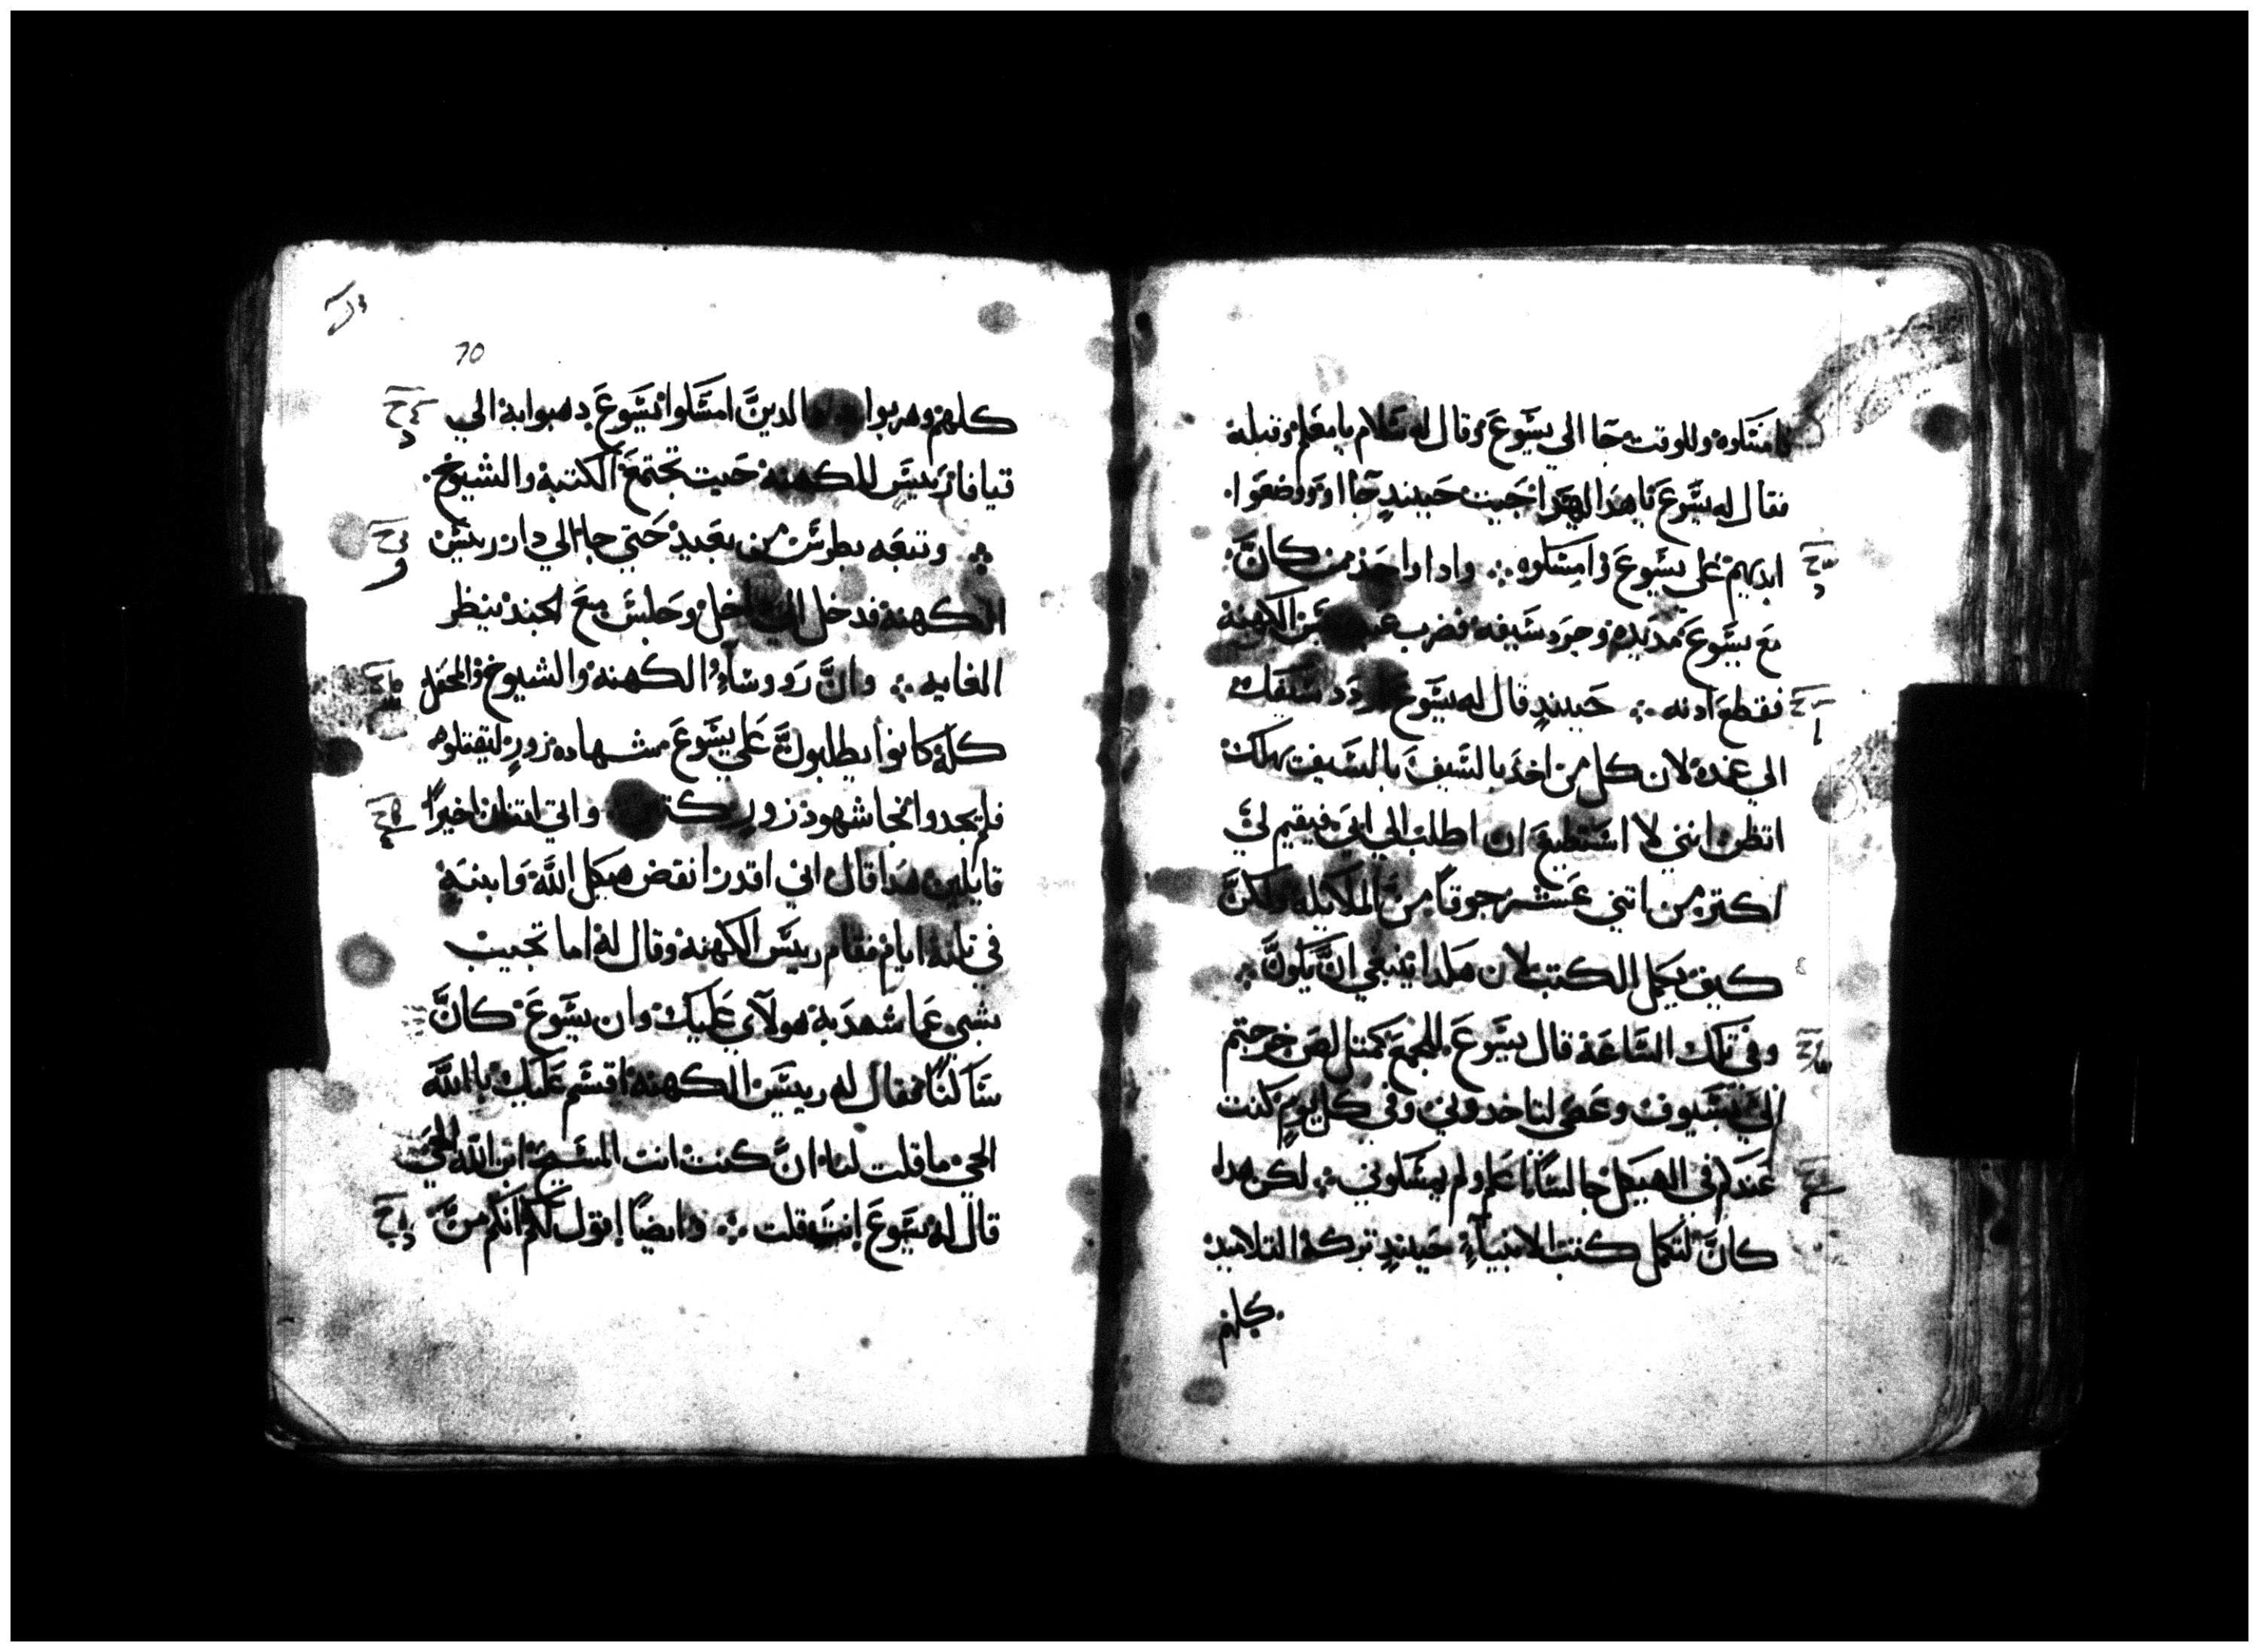 فامسكوه وللوقت جا الي يسوع وقال له سلام يا معلم وقبله
فقال له يسوع يا هدا الهدا جيت حينيدٍ جاا ووضعوا
ايديهم على يسوع وامسكوه ؞ وادا واحد من كان
مع يسوع مد يده وجرد سيفه فضرب الكهنة
فقطع ادنه ؞ حينيدٍ قال له يسوع اردد سيفك
الي غمده لان كل من اخد بالسيف بالسيف يهلك
اتظن انني لا استطيع ان اطلب الي ابي فيقيم لي
اكتر من اتني عشر جوقاً من الملايكه ولكن
كيف يكمل الكتب لان هكدا ينبغي ان يكون
وفي تلك الساعة قال يسوع للجمع كمتل لص خرجتم
الي بسيوف وعصي لتاخدوني وفي كل يوم كنت
عندكم في الهيكل جالساً اعلم ولم تمسكوني ؞ لكن هدا
كان لتكمل كتب الانبياء حينيدٍ تركه التلاميد
كلهم
70
كلهم وهربوا والدين امسكوا يسوع دهبوا به الي
قيافا رييس الكهنه حيت تجتمع الكتبة والشيوخ
؞ وتبعه بطرس من بعيد حتي جا الي دار رييس
الكهنة فدخل الي داخل وجلس مع الجند لينظر
الغايه ؞ وان روساء الكهنه والشيوخ والمحفل
كله كانوا يطلبون علي يسوع شهاده زورٍ ليقتلوه
فلم يجدوا فجا شهود زور واتي اتنان اخيراً
قايلين هدا قال اني اقدر انقض هيكل الله وابنيه
في تلته ايام فقام رييس الكهنه وقال له اما تجيب
بشي عما شهد به هولآي عليك وان يسوع كان
ساكتاً فقال له رييس الكهنه اقسم عليك بالله
الحي ما قلت لنا ان كنت انت المسيح ابن الله الحي
قال له يسوع انت قلت ؞ وايضاً اقول لكم انكم من